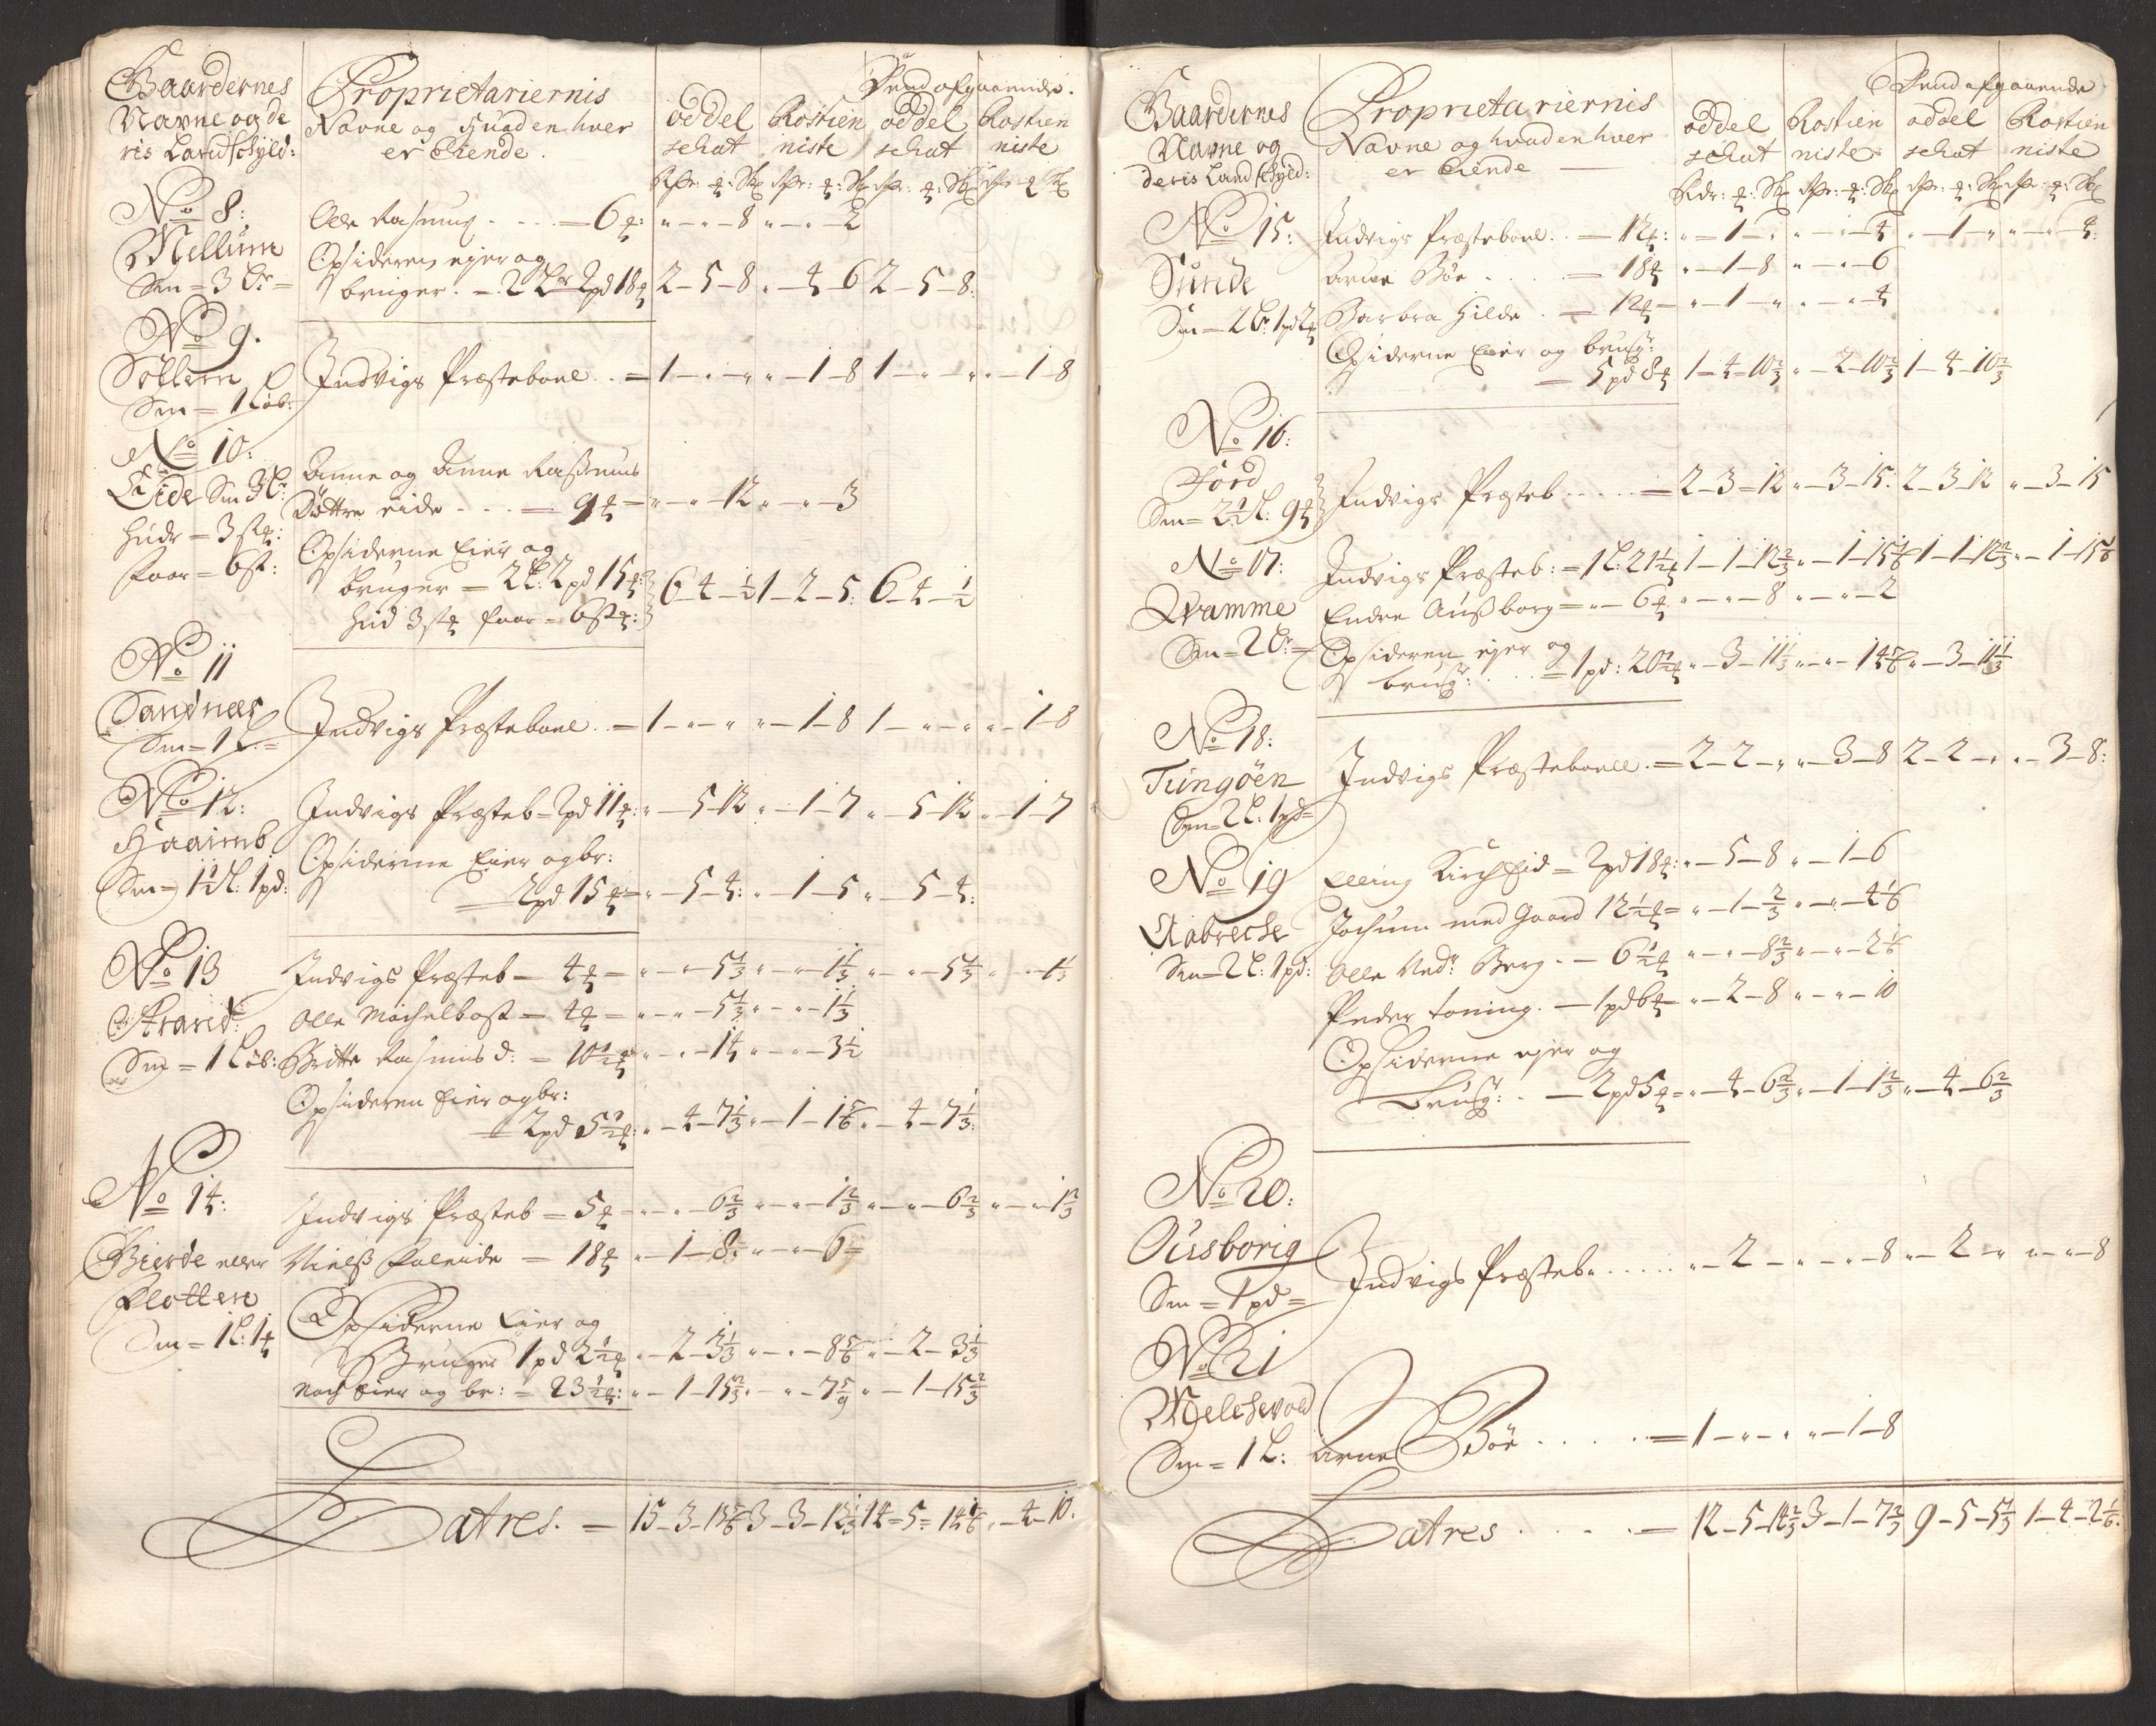 Gaardernes
Navne og de
ris Landschyld:
Proprietariernis
Navne og Huad en hver
er Eiende.
oddel
schat
Rostien
niste
Dend afgaaende.
oddel
schat
Rostien
niste
No 8:
Mellum
Sm = 3 Lr =
Olle Rasmus . . . = 6 " - " - 8 " - " - 2
Opsideren ejer og
bruger . - 2 Lr 2pd 18 2 - 5 - 8 " - 4 - 6 2 - 5 - 8:
No 9.
Söllern
Sm = 1 Löb:
Indvigs Præsteboel . . = 1 - " - " " - 1 - 8 1 - " - " " - 1 - 8
No 10:
Eide Sm 3 Lr:
Hudr = 3 st:
faar = 6 st:
Anne og Anne Rassmus
Döttre eide - - - = 9 = " - " - 12 " - " - 3
Opsiderne Eier og
bruger = 2 L: 2pd 15
Hud 3 st faar = 6 st: 6 - 4 - ½ 1 - 2 - 5: 6 - 4 - ½
No 11
Sandnes
Sm = 1 L: =
Indvigs Præsteboel . . = 1 - " - " " - 1 - 8 1 - " - " " - 1 - 8
No 12:
Haaimb
Sm = 1½ L: 1pd:
Indvigs Præsteb = 2pd 11: " - 5 - 12 " - 1 - 7 " - 5 - 12 " - 1 - 7
Opsiderne Eier og br:
= 2pd 15 = " - 5 - 4: " - 1 - 5 " - 5 - 4:
No 13
Strand:
Sm = 1 Löb:
Indvigs Præsteb = 4 = " - " - 5⅓ " - " - 1⅓ " - " - 5⅓ " - " - 1⅓
Olle Mochelbost = 4 = " - " - 5⅓ " - " - 1⅓
Britte Rasmus d: = 10½ " - " - 14 " - " - 3½
Opsideren Eier og br:
= 2pd 5½: " - 4 - 7⅓ " - 1 - 1⅚ " - 4 - 7⅓:
No 14:
Gierde eller
Flotten
Sm = 1 L: 1
Indvigs Præsteb = 5 - " - " - 6⅔ " - " - 1⅔ " - " - 6⅔ " - " - 1⅔
Nielss Faleide = 18 " - 1 - 8: " - " - 6 =
Opsiderne Eier og
Bruger 1pd 2½ " - 2 - 3⅓ " - " - 8⅚ " - 2 - 3⅓
noch Eier og br: = 23½: " - 1 - 15⅔ " - " - 7 5/9 " - 1 - 15⅔
Latres. = 15 - 3 - 13⅚ 3 - 3 - 12⅓ 14 - 5 - 14⅙ " - 4 - 10.
Gaardernes
Navne og
deris Landschyld:
Proprietariernis
Navne og hvad en hver
er Eiende
oddel
schat
Rostien
niste
Dend afgaaende
oddel
schat
Rostien
niste
No 15:
Sunde
Sm = 2 Lr: 1pd 2
Indvigs Præsteboel . = 12: " - 1 - " " - " - 4 " - 1 - " " - " - 4:
Arne Böe . . . = 18 " - 1 - 8 " - " - 6
Barbra Hilde . = 12 = " - 1 - " " - " - 4
Opsiderne Eier og brug:
= 5pd 8 1 - 4 - 10⅔ " - 2 - 10⅔ 1 - 4 - 10⅔
No 16:
Förd
Sm = 2½ L: 9
Indvigs Præsteb . . . . = 2 - 3 - 12 " - 3 - 15: 2 - 3 - 12 " - 3 - 15
No 17:
Qvamme
Sm = 2 Lr: =
Indvigs Præsteb: = 1 L: 21½ 1 - 1 - 12⅔ " - 1 - 15⅙ 1 - 1 - 12⅔ " - 1 - 15⅙
Endre Aussborg = " - 6 " - " - 8 " - " - 2
Opsideren ejer og
brug: . . = 1pd: 20½ " - 3 - 11⅓ " - " - 14⅚ " - 3 - 11⅓
No 18:
Tungöen
Sm = 2 L: 1pd =
Indvigs Præsteboell . = 2 - 2 - " " - 3 - 8 2 - 2 - " " - 3 - 8:
No 19
Aabreche
Sm = 2 L: 1pd:
Elling Kirch Eid = 2pd 18: " - 5 - 8 " - 1 - 6
Jochum med Gaard 12½ = " - 1 - ⅔ " - " - 4⅙
Olle Nedr Berg . - 6½ " - " - 8⅔ " - " - 2⅙
Peder Toning . - 1pd 6 " - 2 - 8 " - " - 10
Opsiderne ejer og
brug: . - 2pd 5 = " - 4 - 6⅔ " - 1 - 1⅔ " - 4 - 6⅔
No 20:
Ousborig
Sm = 1pd =
Indvigs Præsteb . . . . . " - 2 - " " - " - 8 " - 2 - " " - " - 8
No 21
Melchevold
Sm = 1 L:
Arne Böe . . . . = 1 - " - " " - 1 - 8
Latres . . . . = 12 - 5 - 14⅔ 3 - 1 - 7⅔ 9 - 5 - 5⅓ 1 - 4 - 2⅙.